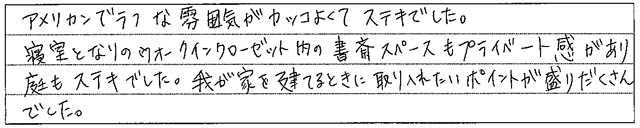 アメリカンでラフな雰囲気がカッコよくてステキでした。
寝室となりのウォークインクローゼット内の書斎スペースもプライベート感があり
庭もステキでした。我が家を建てるときに取り入れたいポイントが盛りだくさん
でした。